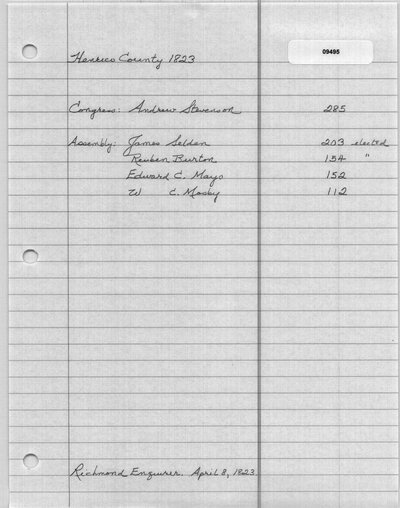 09495
Henrico County 1823
Congress: Andrew Stevenson 285
Assembly: James Selden 203 elected
Reuben Burton 154 "
Edward C. Mayo 152
W C. Mosby 112
Richmond Enquirer. April 8, 1823.